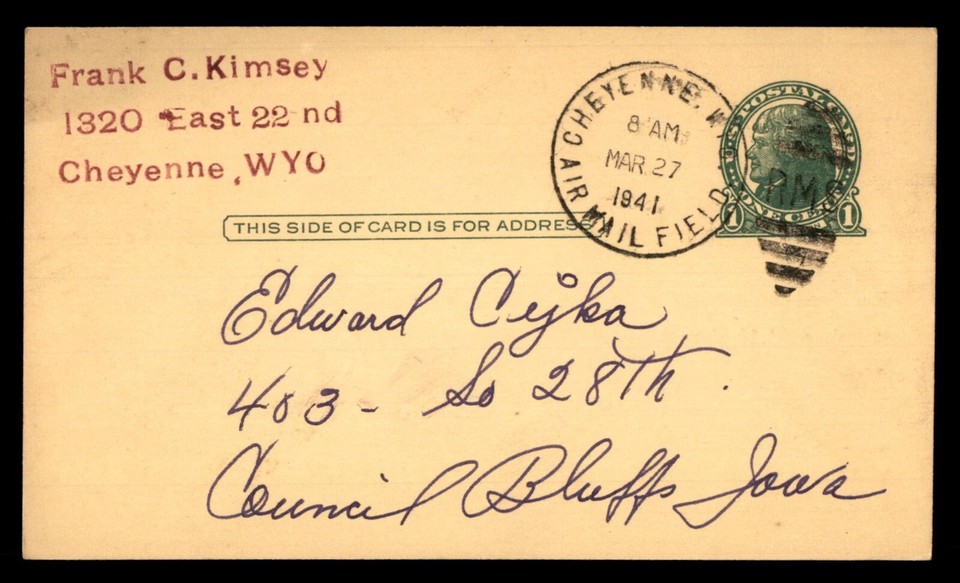 Frank C. Kimsey
1320 East 22 nd
Cheyenne, WYO
CHEYENNE, W
8 AM
MAR. 27
1941
AIR MAIL FIELD
U.S. POSTAL CARD
1 ONE CENT 1
R.M.
THIS SIDE OF CARD IS FOR ADDRESS
Edward Cejka
403 - So 28th.
Council Bluffs Iowa